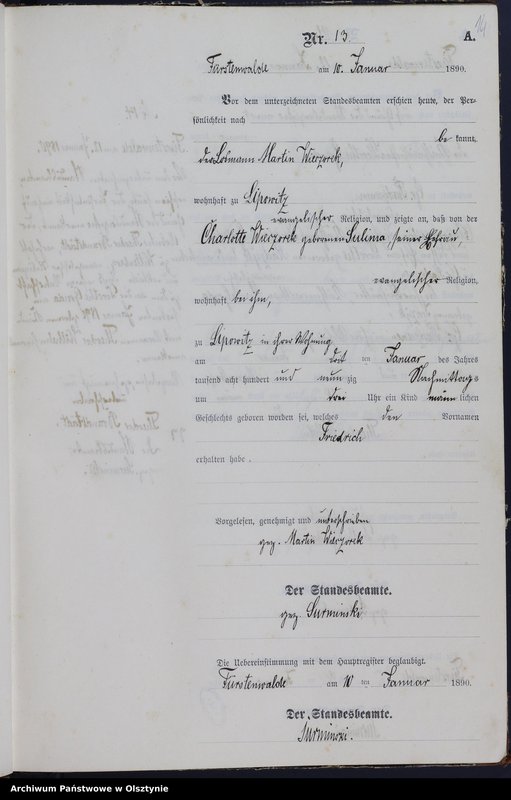 14
Nr. 13. A.
Fürstenwalde am 10. Januar 1890.
Vor dem unterzeichneten Standesbeamten erschien heute, der Per-
sönlichkeit nach
be kannt,
der Losmann Martin Wieczorek,
wohnhaft zu Lipowitz
evangelischer Religion, und zeigte an, daß von der
Charlotte Wieczorek geborenen Sulima, seiner Ehefrau,
evangelischer Religion,
wohnhaft bei ihm,
zu Lipowitz in ihrer Wohnung
am ten Januar des Jahres
tausend acht hundert und neun zig Nachmittags
um drei Uhr ein Kind männ lichen
Geschlechts geboren worden sei, welches den Vornamen
Friedrich
erhalten habe.
Vorgelesen, genehmigt und unterschrieben
gez. Martin Wieczorek
Der Standesbeamte.
gez. Surminski
Die Uebereinstimmung mit dem Hauptregister beglaubigt.
Fürstenwalde am 10 ten Januar 1890.
Der Standesbeamte.
Surminski.
Archiwum Państwowe w Olsztynie